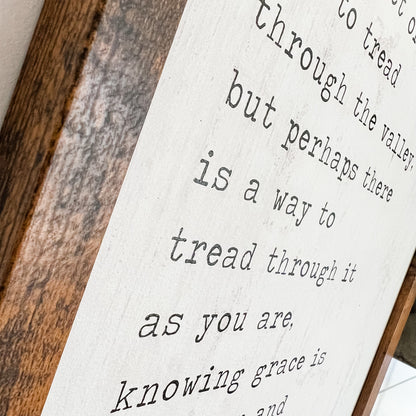 to tread
through the valley,
but perhaps there
is a way to
tread through it
as you are,
knowing grace is
and